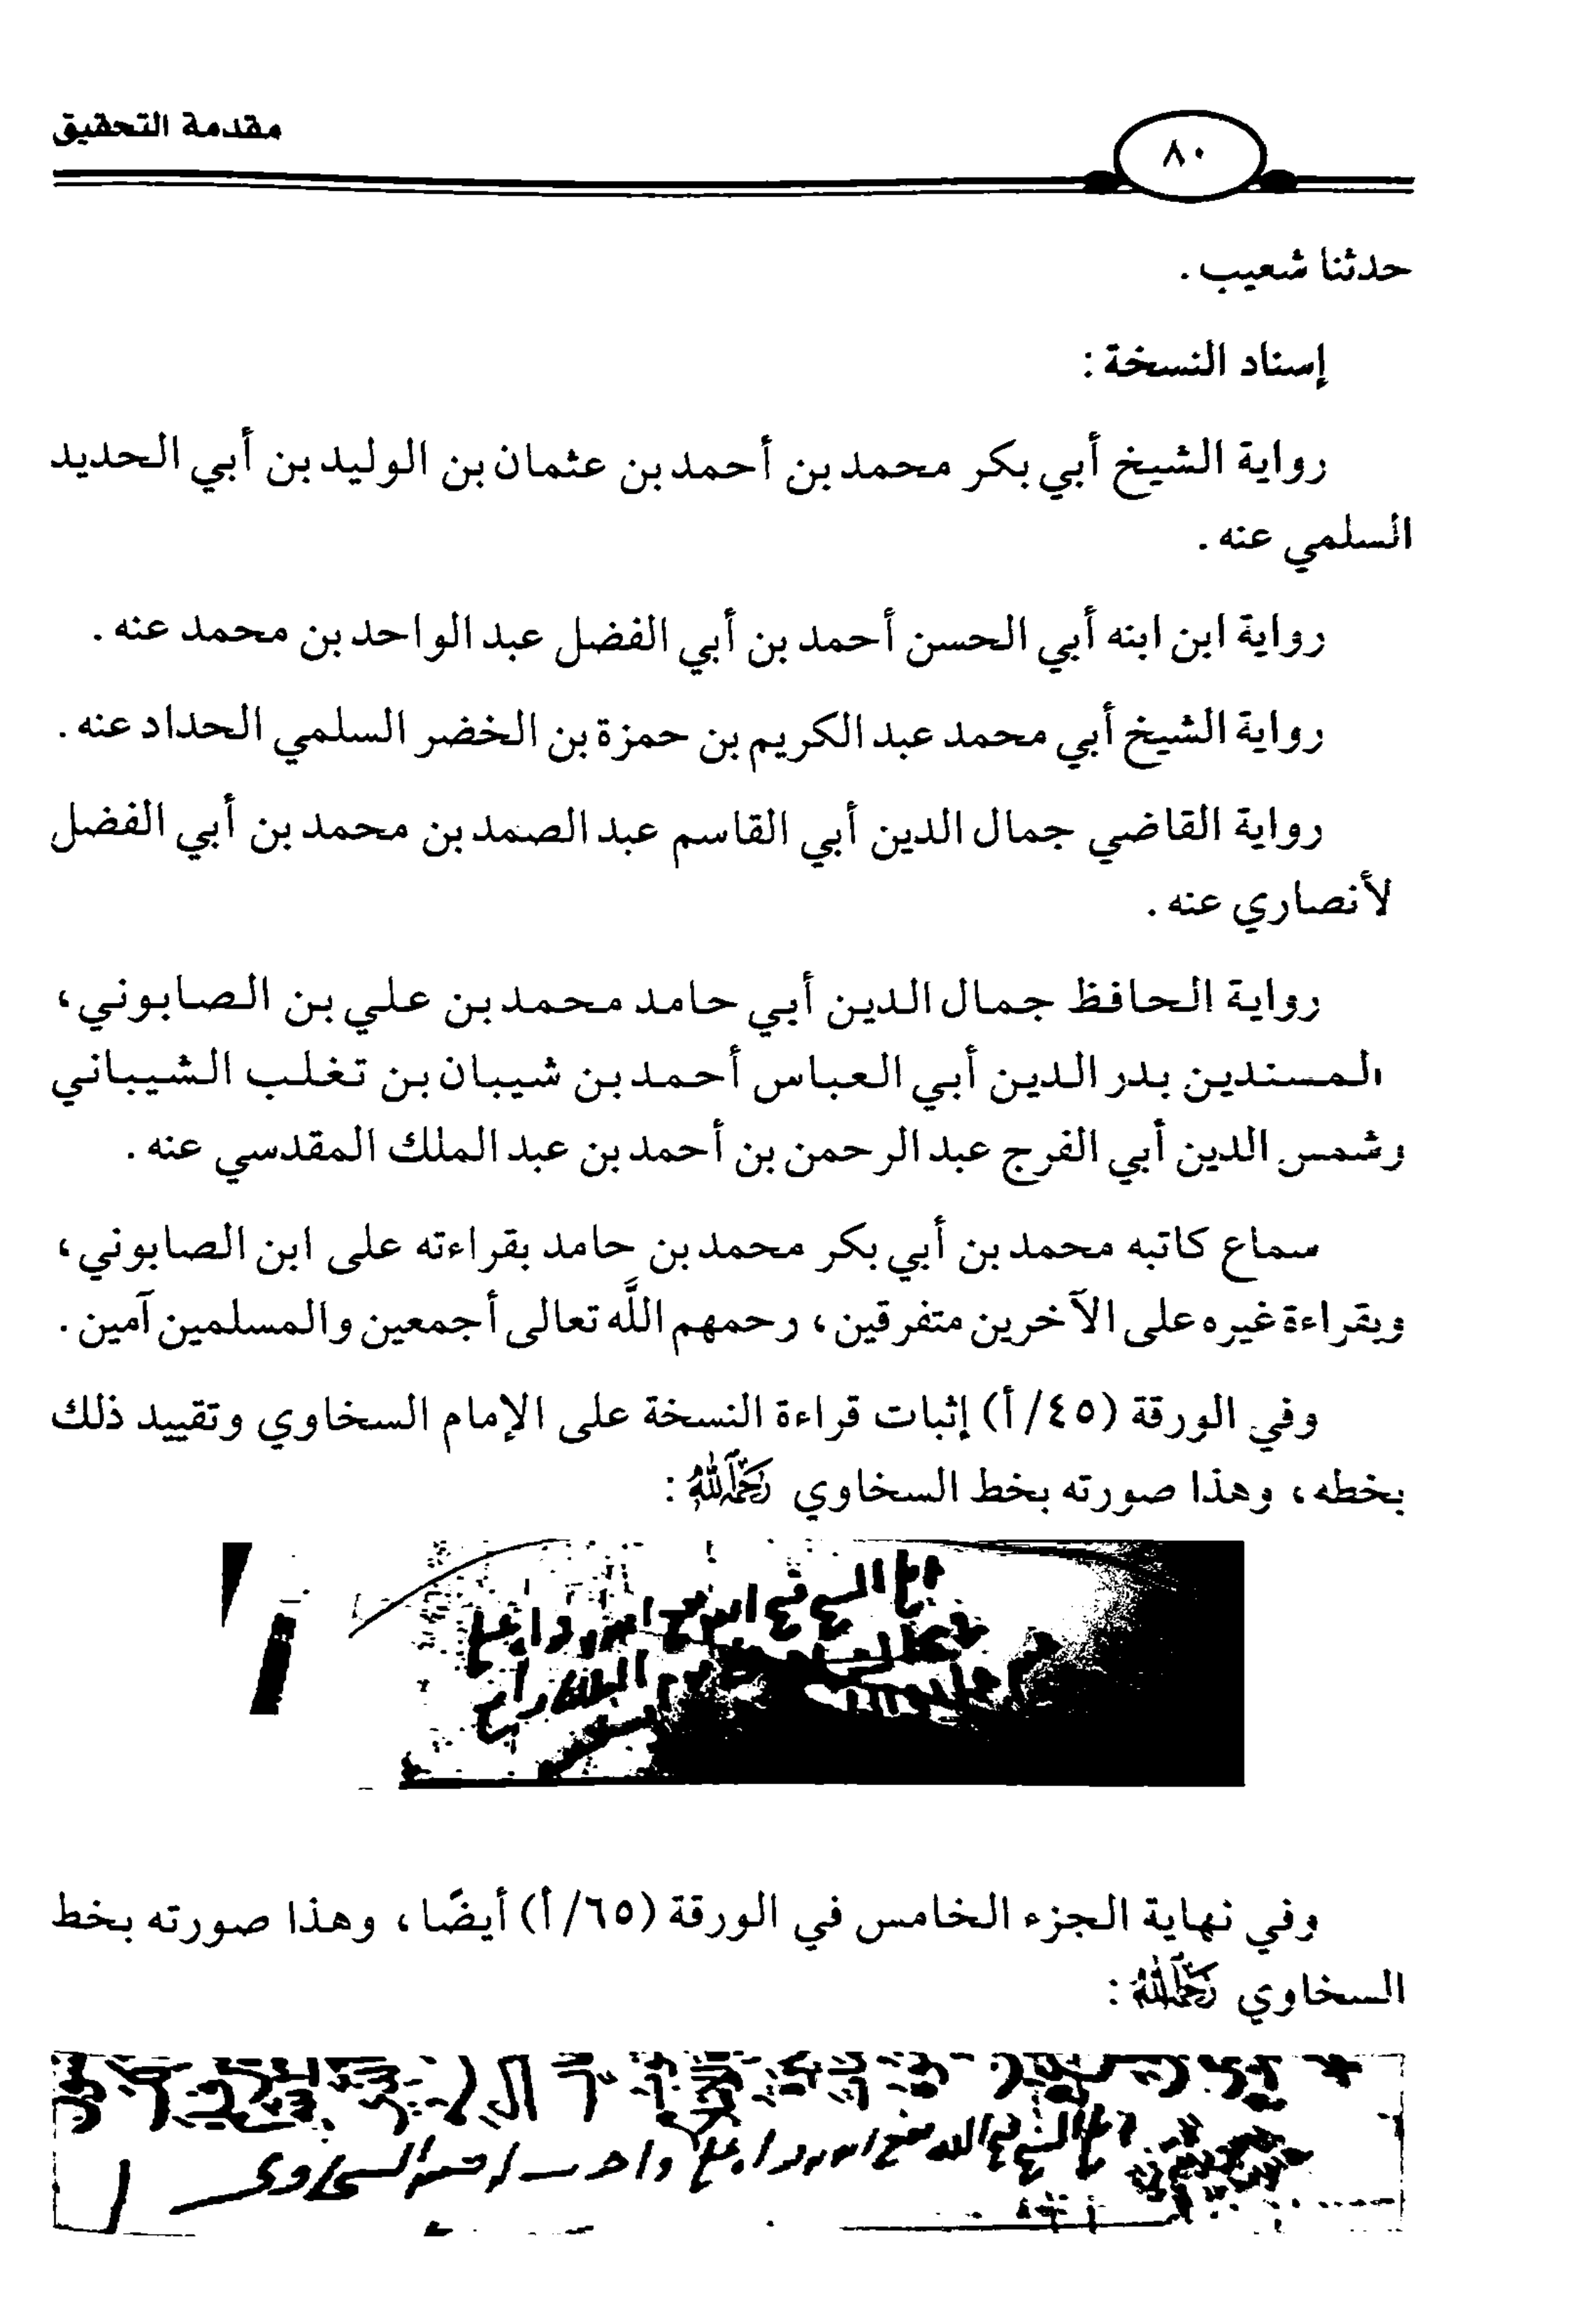 مقدمة التحقيق
٨٠
حدثنا شعيب .
إسناد النسخة :
رواية الشيخ أبي بكر محمد بن أحمد بن عثمان بن الوليد بن أبي الحديد
السلمي عنه .
رواية ابن ابنه أبي الحسن أحمد بن أبي الفضل عبد الواحد بن محمد عنه .
رواية الشيخ أبي محمد عبد الكريم بن حمزة بن الخضر السلمي الحداد عنه .
رواية القاضي جمال الدين أبي القاسم عبد الصمد بن محمد بن أبي الفضل
لأنصاري عنه .
رواية الحافظ جمال الدين أبي حامد محمد بن علي بن الصابوني،
المسندين بدر الدين أبي العباس أحمد بن شيبان بن تغلب الشيباني
وشمس الدين أبي الفرج عبد الرحمن بن أحمد بن عبد الملك المقدسي عنه .
سماع كاتبه محمد بن أبي بكر محمد بن حامد بقراءته على ابن الصابوني،
وبقراءة غيره على الآخرين متفرقين، رحمهم اللَّه تعالى أجمعين والمسلمين آمين .
وفي الورقة (٤٥/ أ) إثبات قراءة النسخة على الإمام السخاوي وتقييد ذلك
بخطه، وهذا صورته بخط السخاوي رَحِمَهُ اللهُ :
وفي نهاية الجزء الخامس في الورقة (٦٥/ أ) أيضًا، وهذا صورته بخط
السخاوي رَحِمَهُ اللهُ :